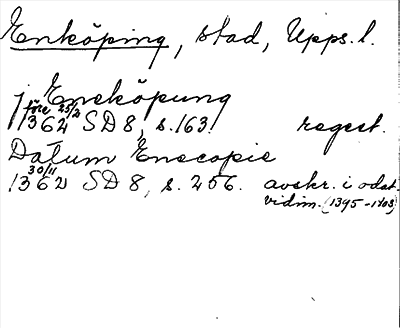 Enköping, stad, Upps. l.
j Eneköpung
före 25/2
1364 SD 8, s. 163. regest.
Datum Enecopie
30/11
1362 SD 8, s. 256. avskr. i odat.
vidim. (1395-1403)